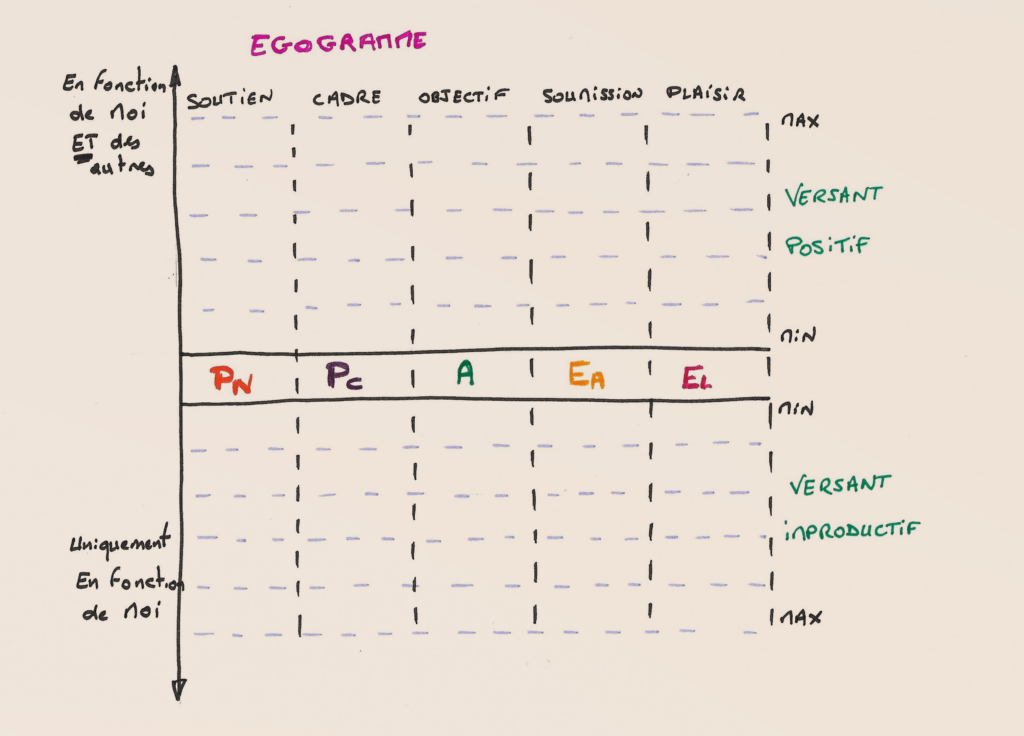 EGOGRAMME
En fonction
de Moi
ET des
autres
SOUTIEN CADRE OBJECTIF SOUMISSION PLAISIR
MAX
VERSANT
POSITIF
MIN
PN PC A EA EL
MIN
VERSANT
IMPRODUCTIF
Uniquement
En fonction
de Moi
MAX